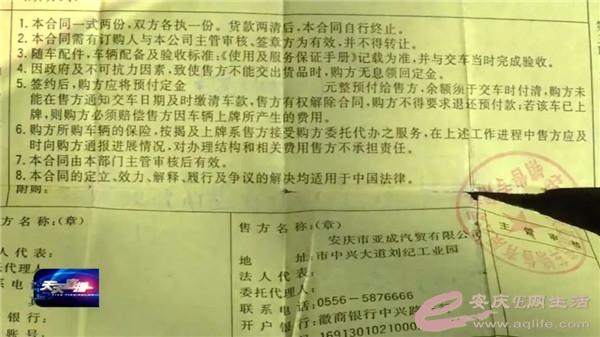 1. 本合同一式两份，双方各执一份。货款两清后，本合同自行终止。
2. 本合同需有订购人与本公司主管审核、签章方为有效，并不得转让。
3. 随车配件，车辆配备及验收标准:《使用及服务保证手册》记载为准，并与交车当时完成验收。
4. 因政府及不可抗力因素，致使售方不能交出货品时，购方无息领回定金。
5. 签约后，购方应将预付定金 元整预付给售方，余额须于交车时付清，购方未
能在售方通知交车日期及时缴清车款，售方有权解除合同，购方不得要求退还预付款；若该车已上
牌，则购方必须赔偿售方因车辆上牌所产生的费用。
6. 购方所购车辆的保险，按揭及上牌系售方接受购方委托代办之服务，在上述工作进程中售方应及
时向购方通报进展情况，对办理结构和相关费用售方不承担责任。
7. 本合同由本部门主管审核后有效。
8. 本合同的定立、效力、解释、履行及争议的解决均适用于中国法律。
附则:
方名称:(章)
人代表:
代理人:
系电话
银行:
账号:
售方名称:(章)
安庆市亚成汽贸有限公司
地 址: 市中兴大道刘纪工业园
法人代表:
委托代理人:
联系电话: 0556-5876666
开户银行: 徽商银行中兴路
主管审核
天天直播
安庆e网生活
www.aqlife.com